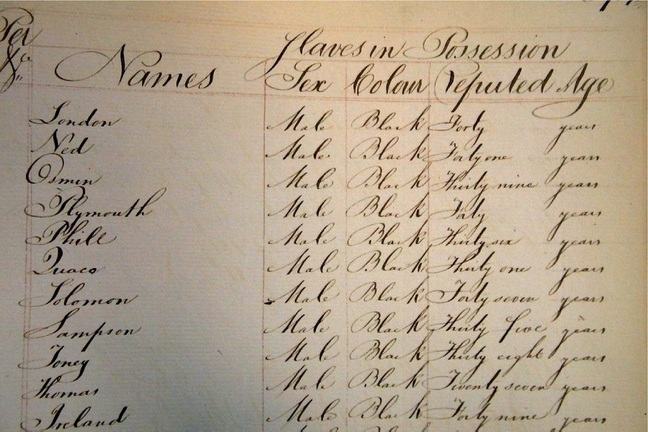 Slaves in Possession
Names Sex Colour Reputed Age
London Male Black Forty years
Ned Male Black Forty one years
Osmin Male Black Thirty nine years
Plymouth Male Black Forty years
Phill Male Black Thirty six years
Quaco Male Black Thirty one years
Solomon Male Black Forty seven years
Sampson Male Black Thirty five years
Toney Male Black Thirty eight years
Thomas Male Black Twenty seven years
Ireland Male Black Forty nine years